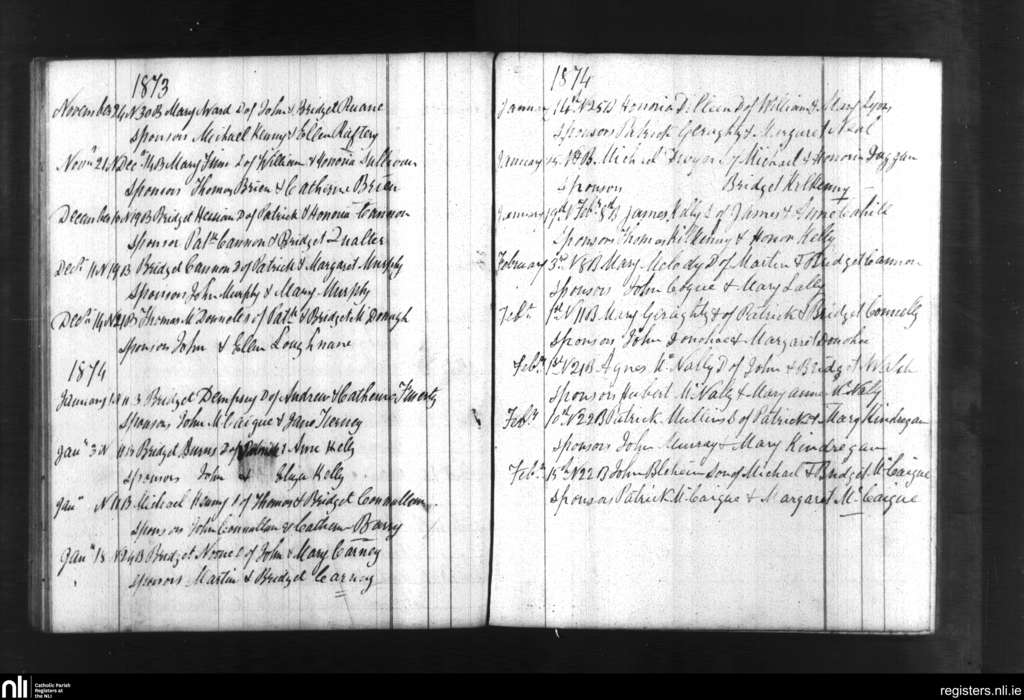 1873
November 24 N30 B Mary Ward D of John & Bridget Ruane
Sponsors Michael Kenny & Ellen Raftery
Novr 21 N Dec B Mary D of William & Honoria Sullivan
Sponsors Thomas Brien & Catherine Brien
December N19 B Bridget Hession D of Patrick & Honoria Cannon
Sponsor Patk Cannon & Bridget Qualter
Decr 11 N19 B Bridget Cannon D of Patrick & Margaret Murphy
Sponsors John Murphy & Mary Murphy
Decr 14 N21 B Thomas S of Patk & Bridget McDonagh
Sponsors John & Ellen Loughnane
1874
January Bridget Dempsey D of Andrew & Catherine
Sponsors John McCaigue & Jane Tierney
Jany 3 N Bridget Burns D of Patrick & Anne Kelly
Sponsors John & Eliza Kelly
Jany N11 B Michael Kenny S of Thomas & Bridget Connellan
Sponsors John Connellan & Catherine Barry
Jany 18 N24 B Bridget Noone of John & Mary Carney
Sponsors Martin & Bridget Carney
1874
January 14th N25 B Honoria D of William & Mary Lyons
Sponsors Patrick Geraghty & Margaret Neal
January B Michael Dwyer of Michael & Honoria Duggan
Sponsors Bridget Kilkenny
January 19th N Feby 8th B James S of James & Anne Cahill
Sponsors Thomas Kilkenny & Honor Kelly
February 3rd N8 B Mary Melody D of Martin & Bridget Cannon
Sponsors John Cogue & Mary Lally
Feby 1st N11 B Mary Geraghty of Patrick & Bridget Connolly
Sponsors John Donohoe & Margaret Donohoe
Feby 1st N21 B Agnes McNally D of John & Bridget Walsh
Sponsors Hubert McNally & Mary anne McNally
Feby 10th N22 B Patrick Mullins S of Patrick & Mary Kindregan
Sponsors John Murray & Mary Kindregan
Feby 15th N22 B John Blehein Son of Michael & Bridget McCaigue
Sponsors Patrick McCaigue & Margaret McCaigue
nli
Catholic Parish
Registers at
the NLI
registers.nli.ie